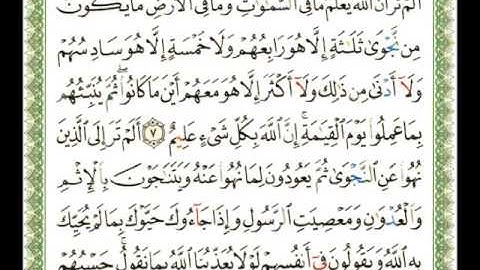 أَلَمْ تَرَ أَنَّ ٱللَّهَ يَعْلَمُ مَا فِى ٱلسَّمَٰوَٰتِ وَمَا فِى ٱلْأَرْضِ مَا يَكُونُ
مِن نَّجْوَىٰ ثَلَٰثَةٍ إِلَّا هُوَ رَابِعُهُمْ وَلَا خَمْسَةٍ إِلَّا هُوَ سَادِسُهُمْ
وَلَآ أَدْنَىٰ مِن ذَٰلِكَ وَلَآ أَكْثَرَ إِلَّا هُوَ مَعَهُمْ أَيْنَ مَا كَانُوا۟ ۖ ثُمَّ يُنَبِّئُهُم
بِمَا عَمِلُوا۟ يَوْمَ ٱلْقِيَٰمَةِ ۚ إِنَّ ٱللَّهَ بِكُلِّ شَىْءٍ عَلِيمٌ ٧ أَلَمْ تَرَ إِلَى ٱلَّذِينَ
نُهُوا۟ عَنِ ٱلنَّجْوَىٰ ثُمَّ يَعُودُونَ لِمَا نُهُوا۟ عَنْهُ وَيَتَنَٰجَوْنَ بِٱلْإِثْمِ
وَٱلْعُدْوَٰنِ وَمَعْصِيَتِ ٱلرَّسُولِ وَإِذَا جَآءُوكَ حَيَّوْكَ بِمَا لَمْ يُحَيِّكَ
بِهِ ٱللَّهُ وَيَقُولُونَ فِىٓ أَنفُسِهِمْ لَوْلَا يُعَذِّبُنَا ٱللَّهُ بِمَا نَقُولُ ۚ حَسْبُهُمْ